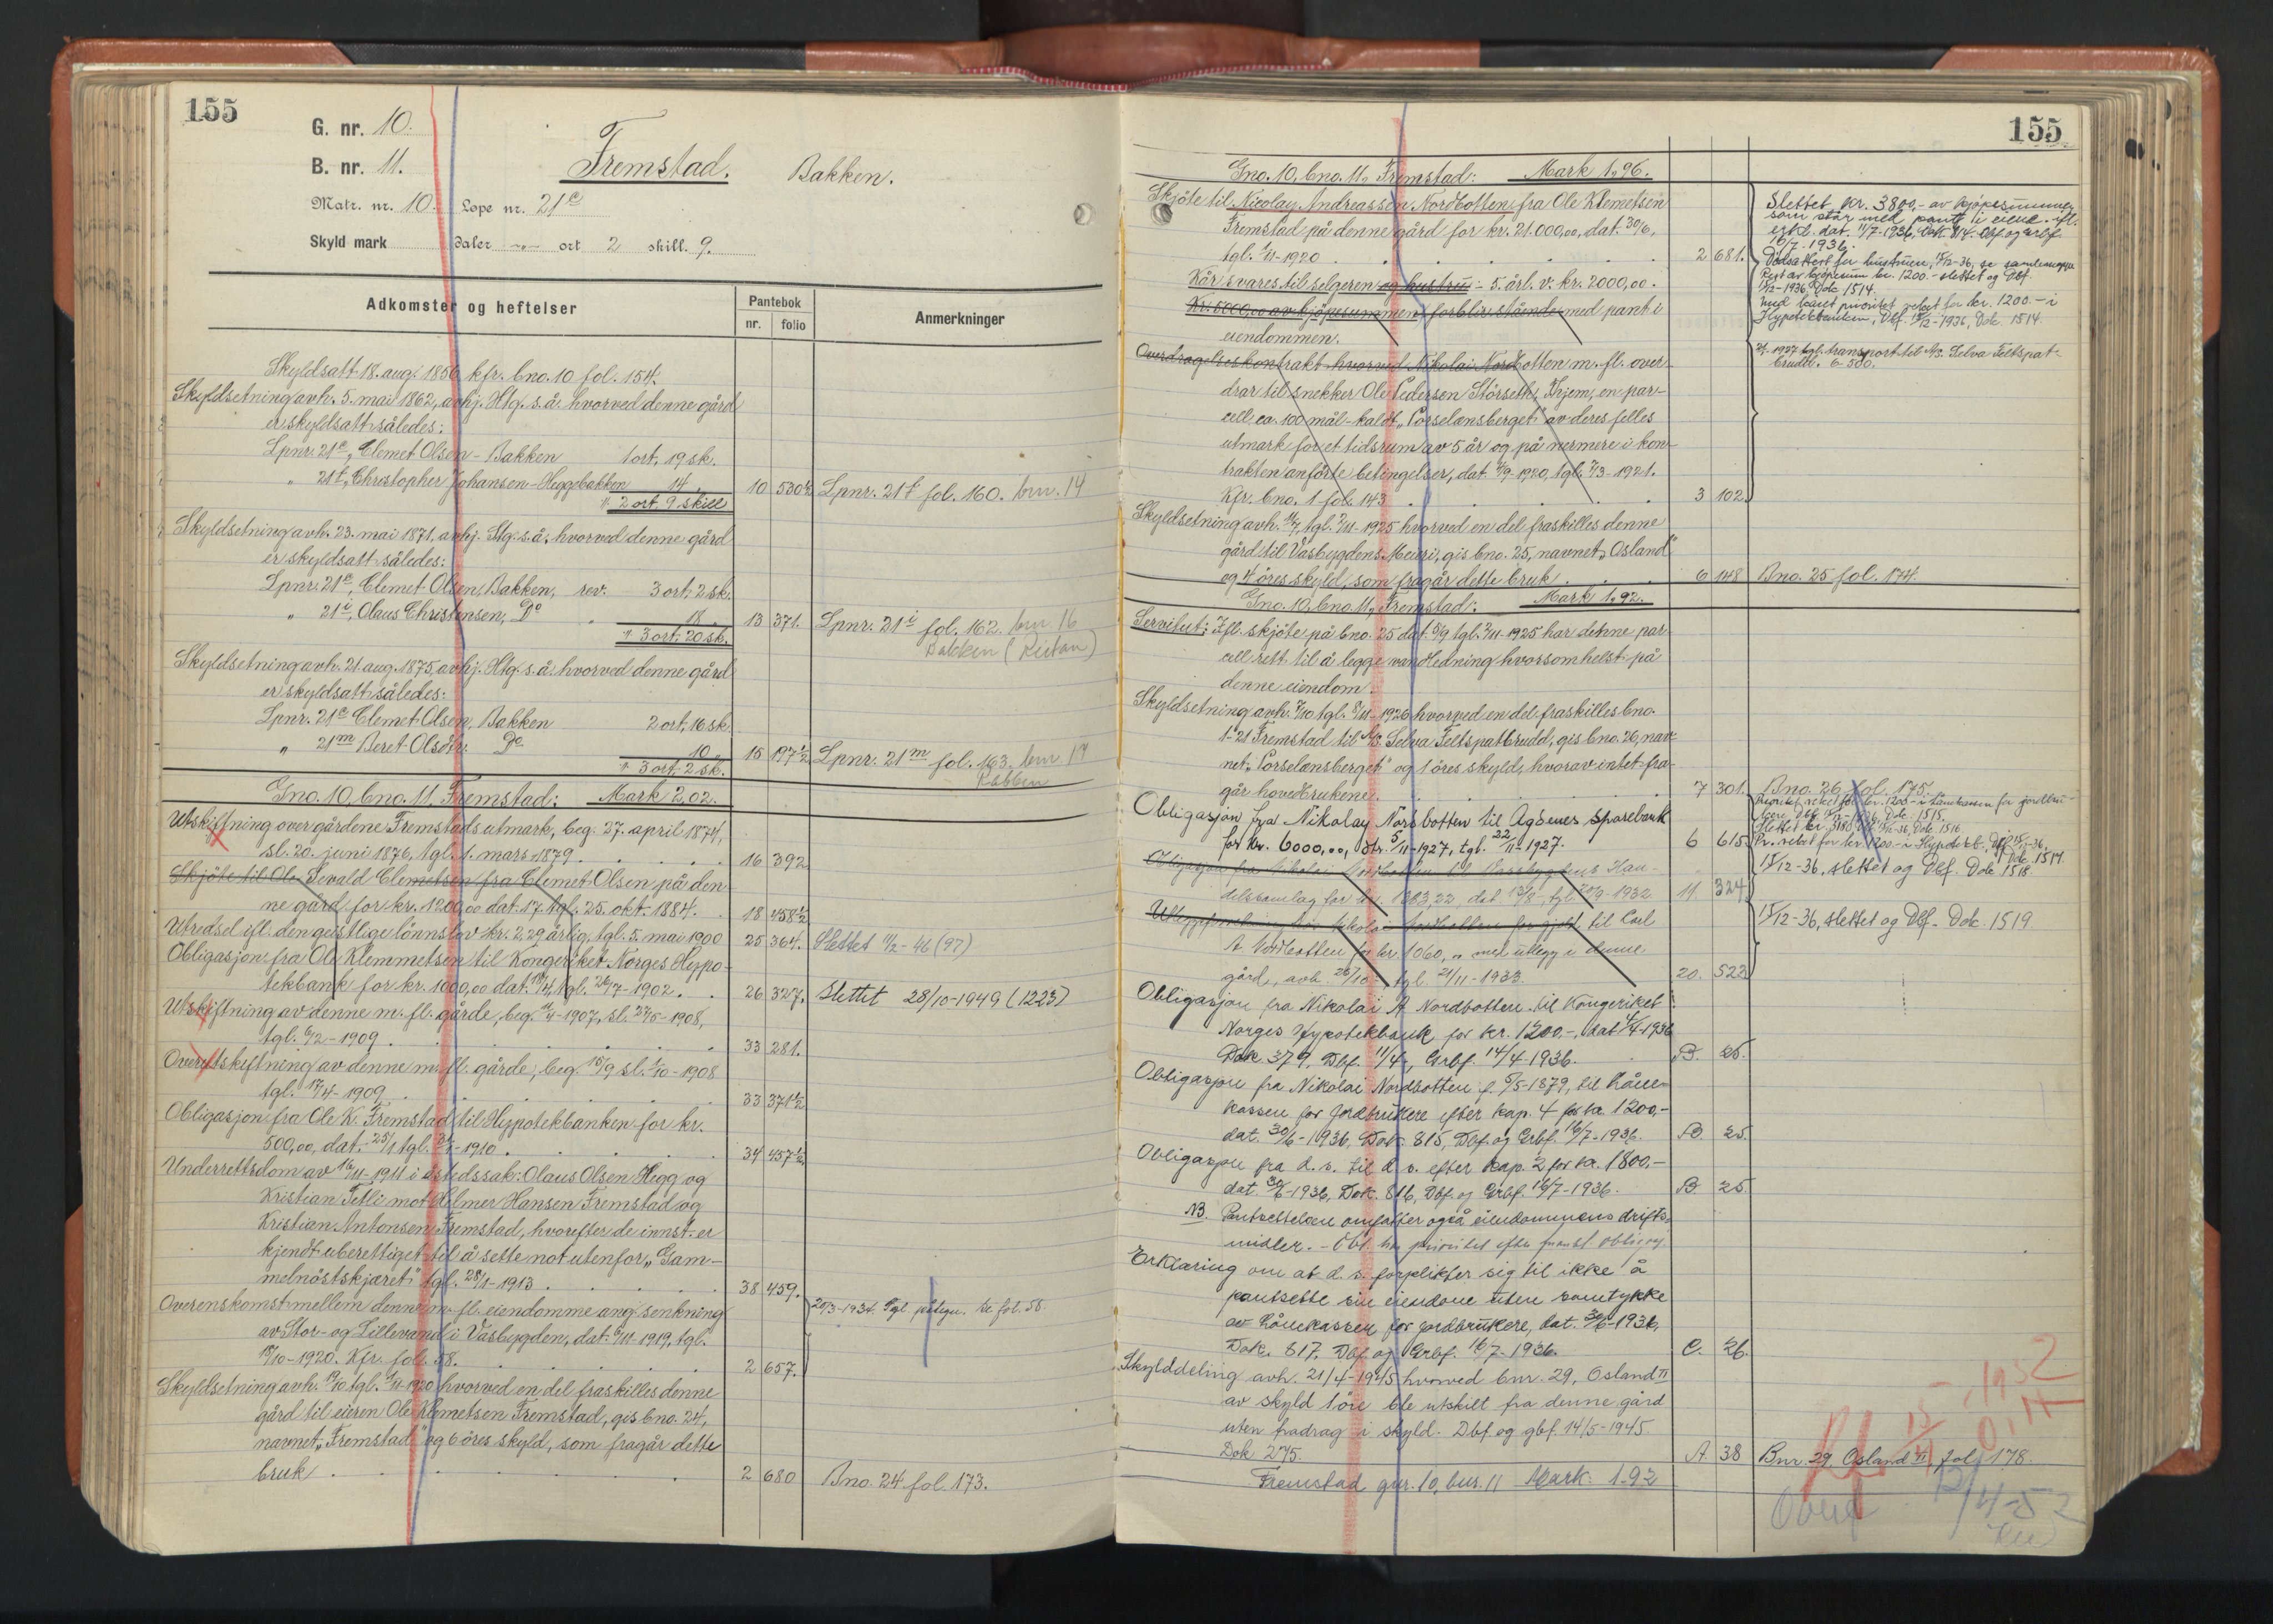 155
G. nr. 10.
B. nr. 11.
Fremstad. Bakken.
Matr. nr. 10. Løpe nr. 21e
Skyld mark daler -„- ort 2 skill. 9.
Adkomster og heftelser
Pantebok
nr. folio
Anmerkninger
Skyldsatt 18. aug. 1856 kfr. bno. 10 fol. 154.
Skyldsetning avh. 5. mai 1862, avhj. Htg. s. å. hvorved denne gård
er skyldsatt således:
Lpnr. 21e, Clemet Olsen - Bakken 1 ort, 19 sk.
" 21f, Christopher Johansen - Heggebakken 14 "
" 2 ort. 9 skill 10 530½ Lpnr. 21f fol. 160. bnr. 14
Skyldsetning avh. 23. mai 1871, avhj. Stg. s. å., hvorved denne gård
er skyldsatt således:
Lpnr. 21e, Clemet Olsen, Bakken, rev. 3 ort, 2 sk.
" 21i, Olaus Christensen, Do " 18 " 13 371. Lpnr. 21i fol. 162. bnr. 16
" 3 ort: 20 sk. Bakken
Skyldsetning avh. 21. aug. 1875, avhj. Htg. s. å. hvorved denne gård
er skyldsatt således:
Lpnr. 21e Clemet Olsen, Bakken 2 ort, 16 sk.
" 21m Beret Olsdtr. Do 10 " 15 197½ Lpnr. 21m fol. 163. bnr 17
" 3 ort - 2 sk. Rabben
Gno. 10, bno. 11, Fremstad: Mark 2,02.
Utskiftning over gårdene Fremstads utmark, beg. 27. april 1874,
sl. 20. juni 1876, tgl. 1. mars 1879 . . . . 16 392
Skjøte til Ole Sevald Clemetsen fra Clemet Olsen på den-
ne gård for kr. 1200,00 dat. 17. tgl. 25. okt. 1884. . 18 458½
Utredsel ifl. den geistlige lønnslov kr. 2,29 årlig, tgl. 5. mai 1900 25 364. Slettet 11/2-46 (97)
Obligasjon fra Ole Klemmetsen til Kongeriket Norges Hypo-
tekbank for kr. 1000,00 dat. 19/4, tgl. 26/7-1902. . 26 327. Slettet 28/10-1949 (1223)
Utskiftning av denne m. fl. gårde, beg. 11/4-1907, sl. 27/5-1908,
tgl. 6/2-1909 . . . . . 33 281.
Overutskiftning av denne m. fl. gårde, beg. 15/9 sl. 1/10-1908
tgl. 17/4-1909 . . . . . 33 371½
Obligasjon fra Ole K. Fremstad til Hypotekbanken for kr.
500,00, dat. 25/1 tgl. -1910 . . . . 34 457½
Underrettsdom av 16/11-1911 i åstedssak: Olaus Olsen Hegg og
Kristian Tetli mot Helmer Hansen Fremstad og
Kristian Antonsen Fremstad, hvorefter de innst. er
kjendt uberettiget til å sette not utenfor „Gam-
melnöstskjæret" tgl. 28/1-1913 . . . . 38 459.
Overenskomst mellem denne m. fl. eiendomme ang. senkning 20/3-1934. Tgl. påtegn. se fol. 58.
av Stor- og Lillevand i Vasbygden, dat. 6/11-1919, tgl.
19/10-1920. Kfr. fol. 58. . . . . 2 657.
Skyldsetning avh. 19/10 tgl. 1/11-1920 hvorved en del fraskilles denne
gård til eieren Ole Klemetsen Fremstad, gis bno. 24,
navnet „Fremstad" og 6 öres skyld, som fragår dette
bruk . . . . . . 2 680 Bno. 24 fol. 173.
155
Gno. 10, bno. 11, Fremstad: Mark 1,96.
Skjöte til Nicolay Andreassen Nordbotten fra Ole Klemetsen
Fremstad på denne gård for kr. 21.000,00, dat. 30/6,
tgl. 1/11-1920 . . . . . 2 681.
Slettet kr. 3800,- av kjöpesummen
som står med pant i eiend. ifl.
erkl. dat. 11/7-1936, Dok. 814. Dbf. og grbf
16/7-1936.
Dödsattest for hustruen, 15/12-36, se
Rest av kjöpesum kr. 1200.- slettet og Dbf.
15/12-1936, Dok 1514.
prioritet veket for kr. 1200.- i
Hypotekbanken, Dbf. 15/12-1936, Dok. 1514.
Kår svares til selgeren og hustru - 5. årl. v. kr. 2000,00.
Kr. 5000,00 av kjöpesummen forblir stående med pant i
eiendommen.
Overdragelseskontrakt hvorved Nikolai Nordbotten m. fl. over-
-1927 tgl. transport til A/S. Selva Feltspat-
brudd. 6-580.
drar til snekker Ole Pedersen Störseth, Thjem, en par-
cell ca. 100 mål - kaldt „Porselænsberget" av deres felles
utmark for et tidsrum av 5 år og på nermere i kon-
trakten anförte betingelser, dat. 2/9-1920, tgl. 7/3-1921.
Kfr. bno. 1 fol. 143 . . . . 3 102.
Skyldsetning avh. 11/7, tgl. 2/11-1925 hvorved en del fraskilles denne
gård til Vasbygdens Meieri, gis bno. 25, navnet „Osland"
og 4 öres skyld, som fragår dette bruk . . . 6 148 Bno. 25 fol. 174.
Gno. 10, bno. 11, Fremstad: Mark 1,92.
Servitut: Ifl. skjöte på bno. 25 dat. 5/9 tgl. 2/11-1925 har denne par-
cell rett til å legge vandledning hvorsomhelst på
denne eiendom.
Skyldsetning avh. 7/10 tgl. 8/11-1926 hvorved en del fraskilles bno.
1-21 Fremstad til A/S. Selva Feltspatbrudd, gis bno. 26, nav-
net „Porselænsberget" og 1 öres skyld, hvorav intet fra-
går hovedbrukene. . . . . . 7 301. Bno. 26 fol. 175.
Obligasjon fra Nikolay Nordbotten til Agdenes Sparebank
for kr. 6000,00, dat. 5/11-1927, tgl. 22/11-1927. 6 615
Prioritet veket for kr. 1200.- i Lånekassen for jordbru-
kere Dok. 1515.
Slettet kr. Dok. 1516.
Pr. veket for kr. 1200.- i Hypotekb. Dbf. 15/12-36.
Dok. 1514.
15/12-36, slettet og Dbf. Dok 1518.
Obligasjon fra Nikolai Nordbotten til Vassbygdens Han-
delssamlag for kr. 1383,22, dat 13/8, tgl 20/9-1932 11. 324
Utleggsforretning hos Nikolai Nordbotten for gjeld til Carl
A Nordbotten for kr. 1060,- med utlegg i denne
gård, avh 26/10- tgl 21/11-1933 20. 522 15/12-36, slettet og Dbf- Dok. 1519.
Obligasjon fra Nikolai A Nordbotten til Kongeriket
Norges Hypotekbank for kr. 1200.-, dat 4/4-1936
Dok. 379, Dbf. 11/4, Grbf. 14/4-1936. B. 25.
Obligasjon fra Nikolai Nordbotten f. 5/5-1879, til Låne-
kassen for Jordbrukere efter kap. 4 for kr. 1200,-
dat. 30/6-1936, Dok. 815, Dbf. og Grbf. 16/7-1936. B. 25.
Obligasjon fra d. s. til d. s. efter kap. 2 for kr. 1800.-
dat. 30/6-1936, Dok. 816, Dbf. og Grbf. 16/7-1936. B. 25.
NB. Pantsettelsen omfatter også eiendommens drifts-
midler. - Obl. har prioritet efter
Erklæring om at d. s. forplikter sig til ikke å
pantsette sin eiendom uten samtykke
av Lånekassen for jordbrukere, dat. 30/6-1936,
Dok. 817, Dbf og Grbf. 16/7-1936. C. 26.
Skylddeling avh. 21/4-1945 hvorved bnr. 29, Osland II
av skyld 1 öre ble utskilt fra denne gård
uten fradrag i skyld. Dbf og gbf. 14/5-1945.
Dok 275. A 38 Bnr. 29 Osland II, fol 178.
Fremstad gnr. 10, bnr. 11 Mark: 1.92
1952
Overf 12/4-52